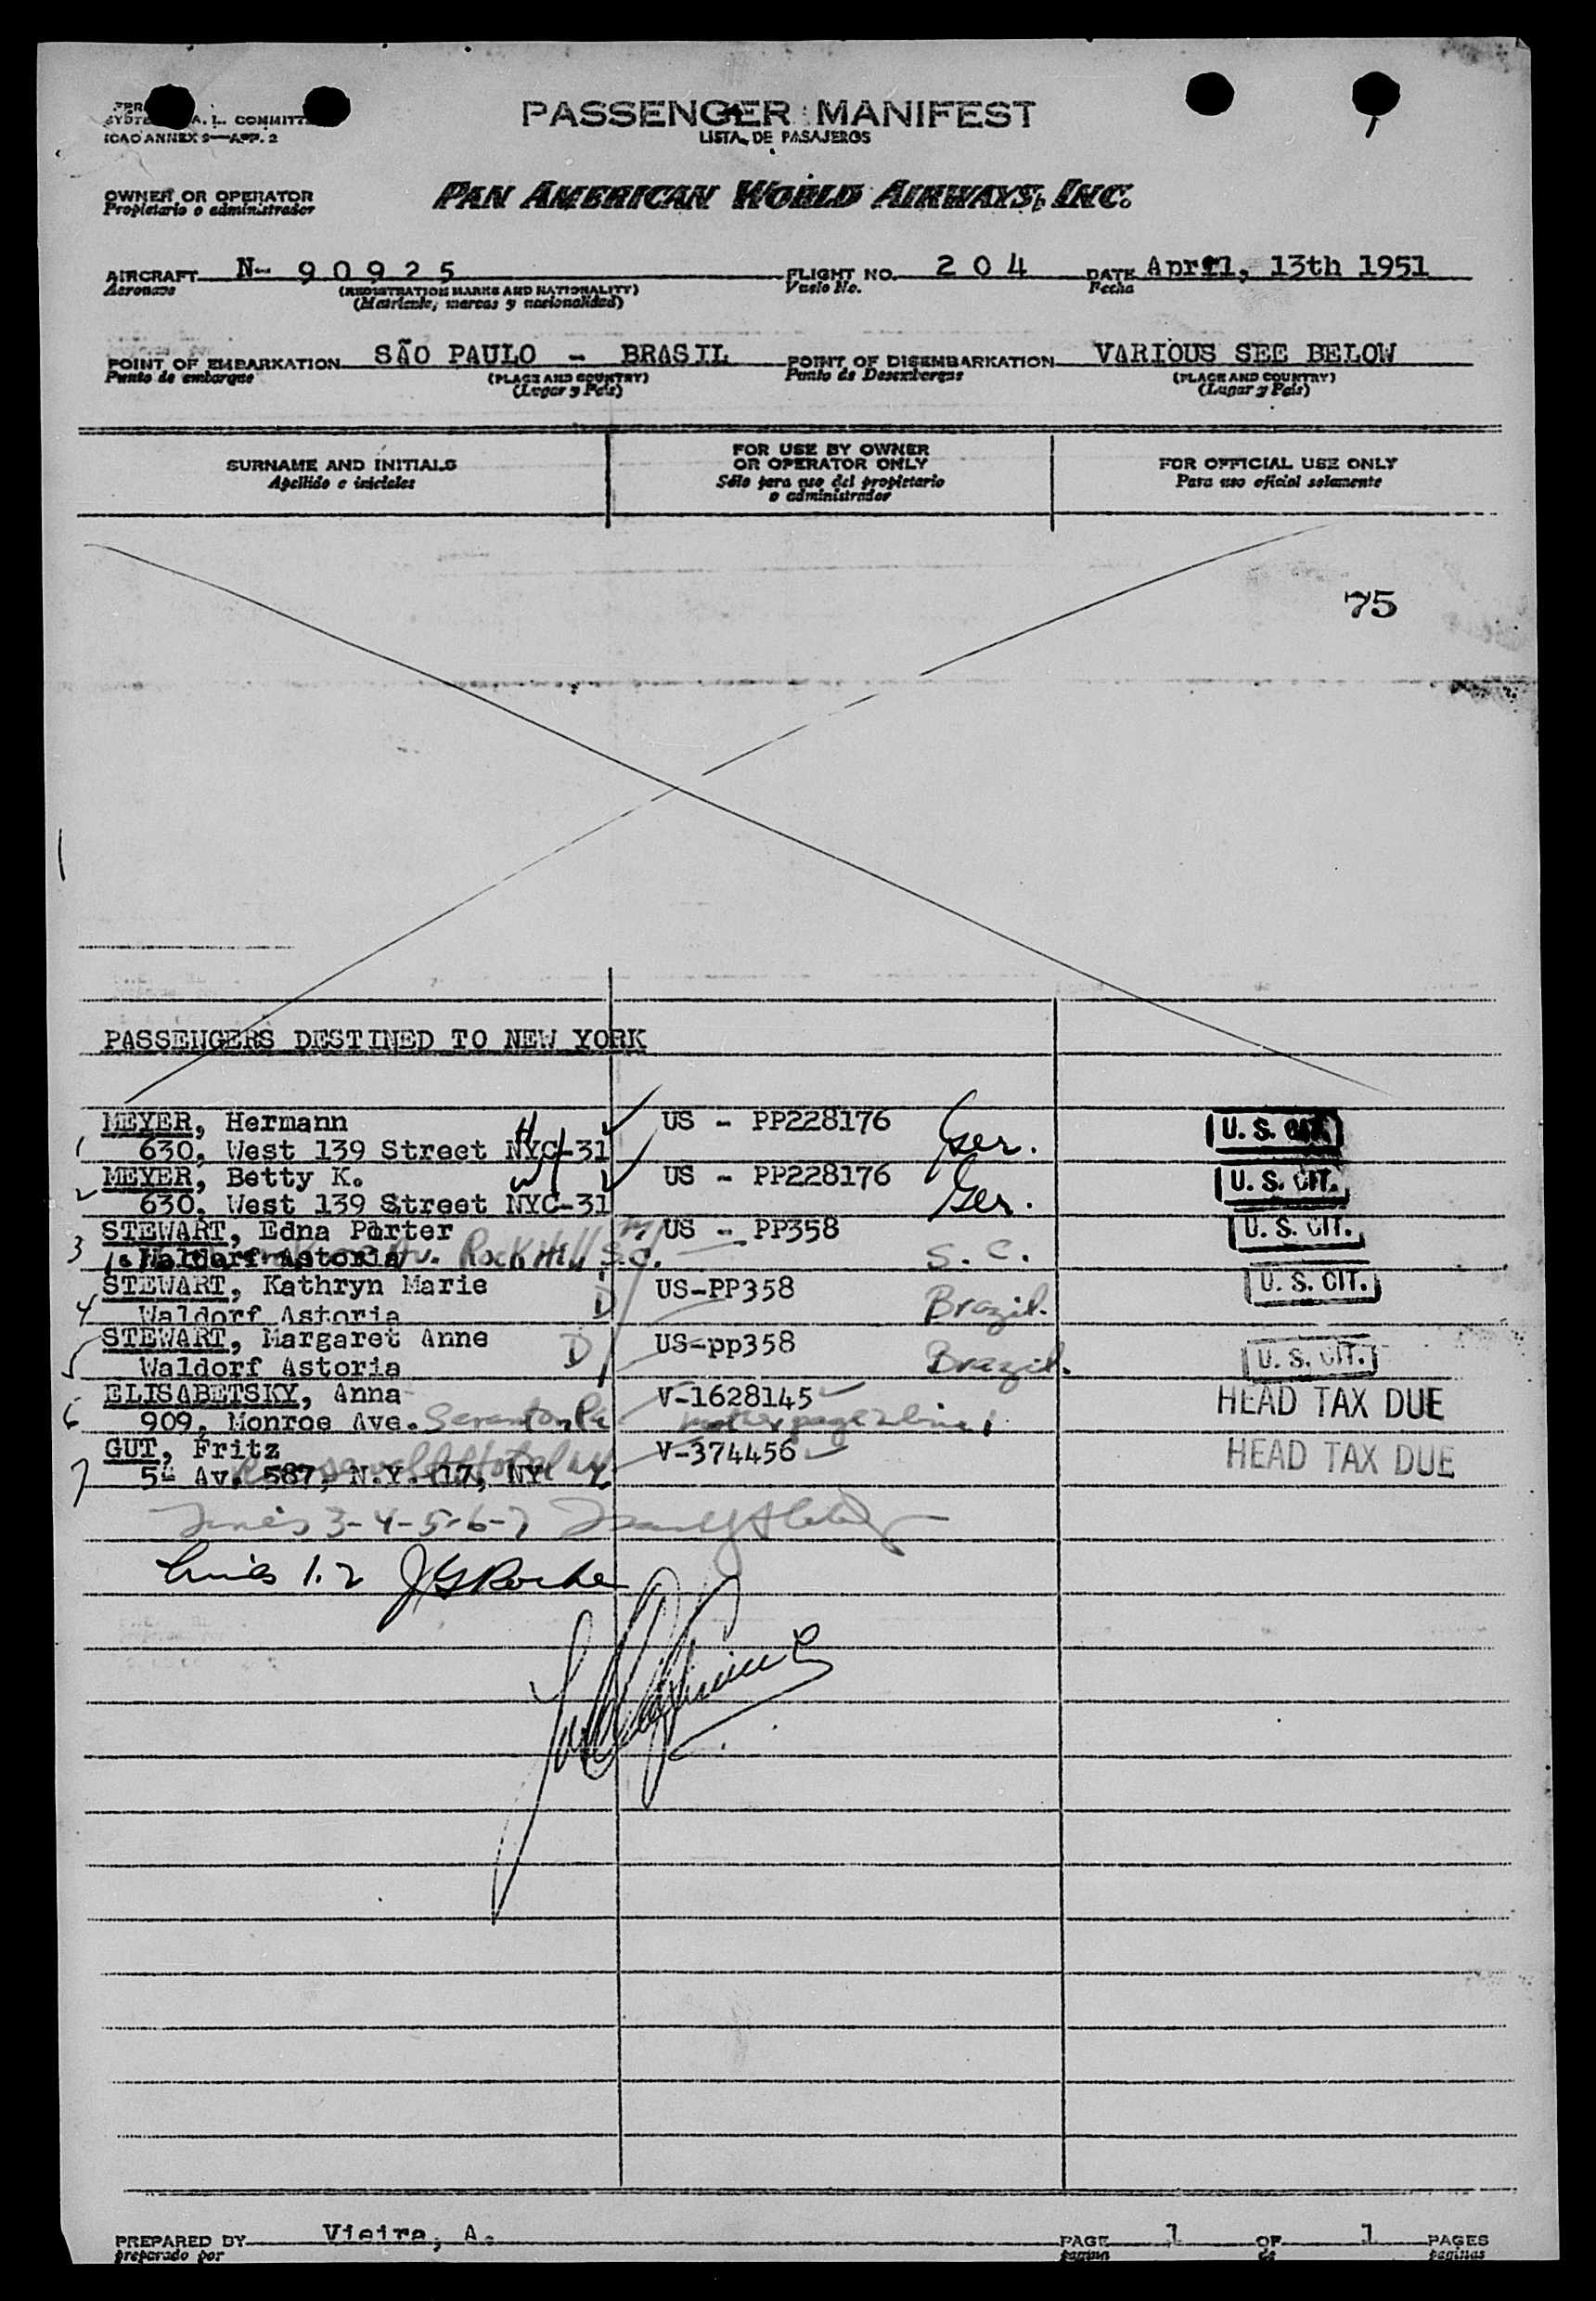 A. L. COMMITT
PASSENGER MANIFEST
ICAO ANNEX 9—APP. 2
LISTA DE PASAJEROS
OWNER OR OPERATOR
Propietario o administrador
PAN AMERICAN WORLD AIRWAYS, INC.
AIRCRAFT N- 90925 FLIGHT NO. 204 DATE April, 13th 1951
Aeronave (REGISTRATION MARKS AND NATIONALITY) Vuelo No. Fecha
(Matricula, marcas y nacionalidad)
POINT OF EMBARKATION SÃO PAULO - BRASIL POINT OF DISEMBARKATION VARIOUS SEE BELOW
Punto de embarque (PLACE AND COUNTRY) Punto de Desembarque (PLACE AND COUNTRY)
(Lugar y País) (Lugar y País)
SURNAME AND INITIALS
Apellido e iniciales
FOR USE BY OWNER
OR OPERATOR ONLY
Sólo para uso del propietario
o administrador
FOR OFFICIAL USE ONLY
Para uso oficial solamente
75
PASSENGERS DESTINED TO NEW YORK
MEYER, Hermann US - PP228176 Ger. U. S. CIT.
1 630, West 139 Street NYC-31
MEYER, Betty K. US - PP228176 Ger. U. S. CIT.
2 630, West 139 Street NYC-31
STEWART, Edna Porter US - PP358 S. C. U. S. CIT.
3 Waldorf Astoria Av. Rock Hill S.C.
STEWART, Kathryn Marie D US-PP358 Brazil. U. S. CIT.
4 Waldorf Astoria
STEWART, Margaret Anne D US-pp358 Brazil. U. S. CIT.
5 Waldorf Astoria
ELISABETSKY, Anna V-1628145 HEAD TAX DUE
6 909, Monroe Ave. Scranton Pa
GUT, Fritz V-374456 HEAD TAX DUE
7 5ª Av. 587, N.Y. (17, NY
Lines 3-4-5-6-7
Lines 1.2 JG Roche
PREPARED BY Vieira, A. PAGE 1 OF 1 PAGES
preparado por pagina de paginas